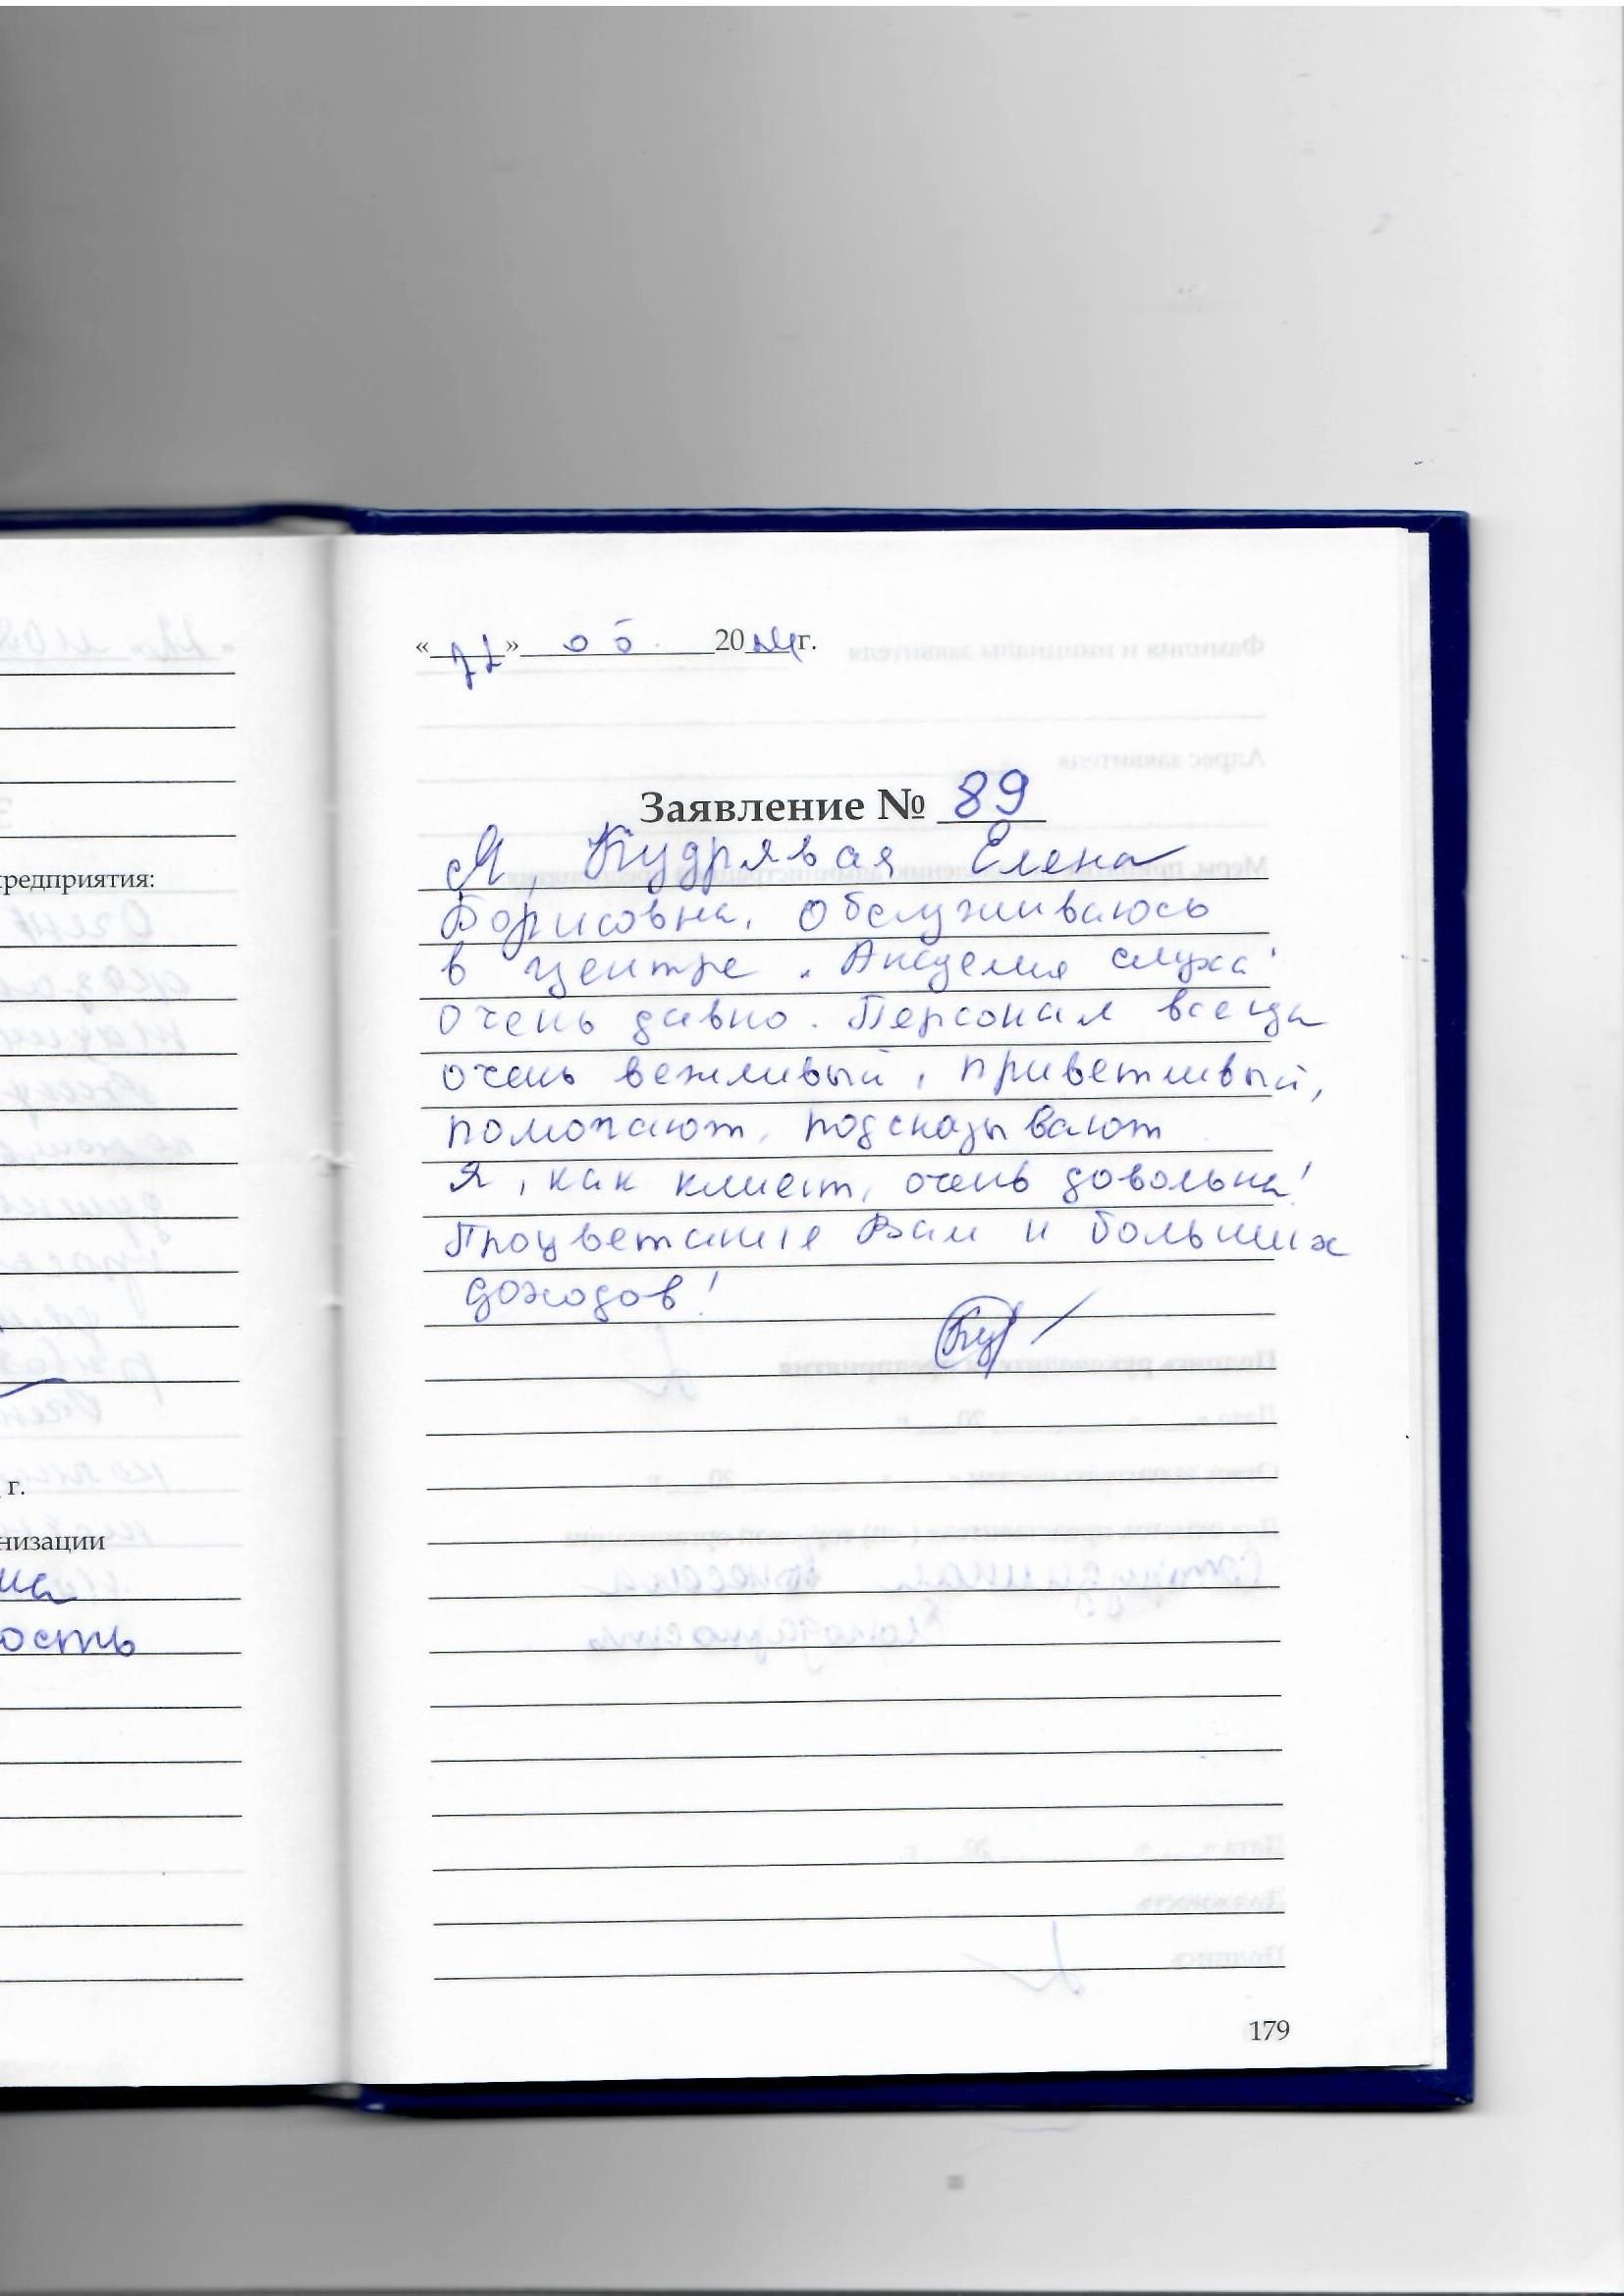 редприятия:
г.
низации
на
ость
« » 05. 20 г.
Заявление № 89
Я, Кудрявая Елена
Борисовна, обслуживаюсь
в центре "Академия слуха"
очень давно. Персонал всегда
очень вежливый, приветливый,
помогают, подсказывают
Я, как клиент, очень довольна!
Процветание Вам и больших
доходов!
179